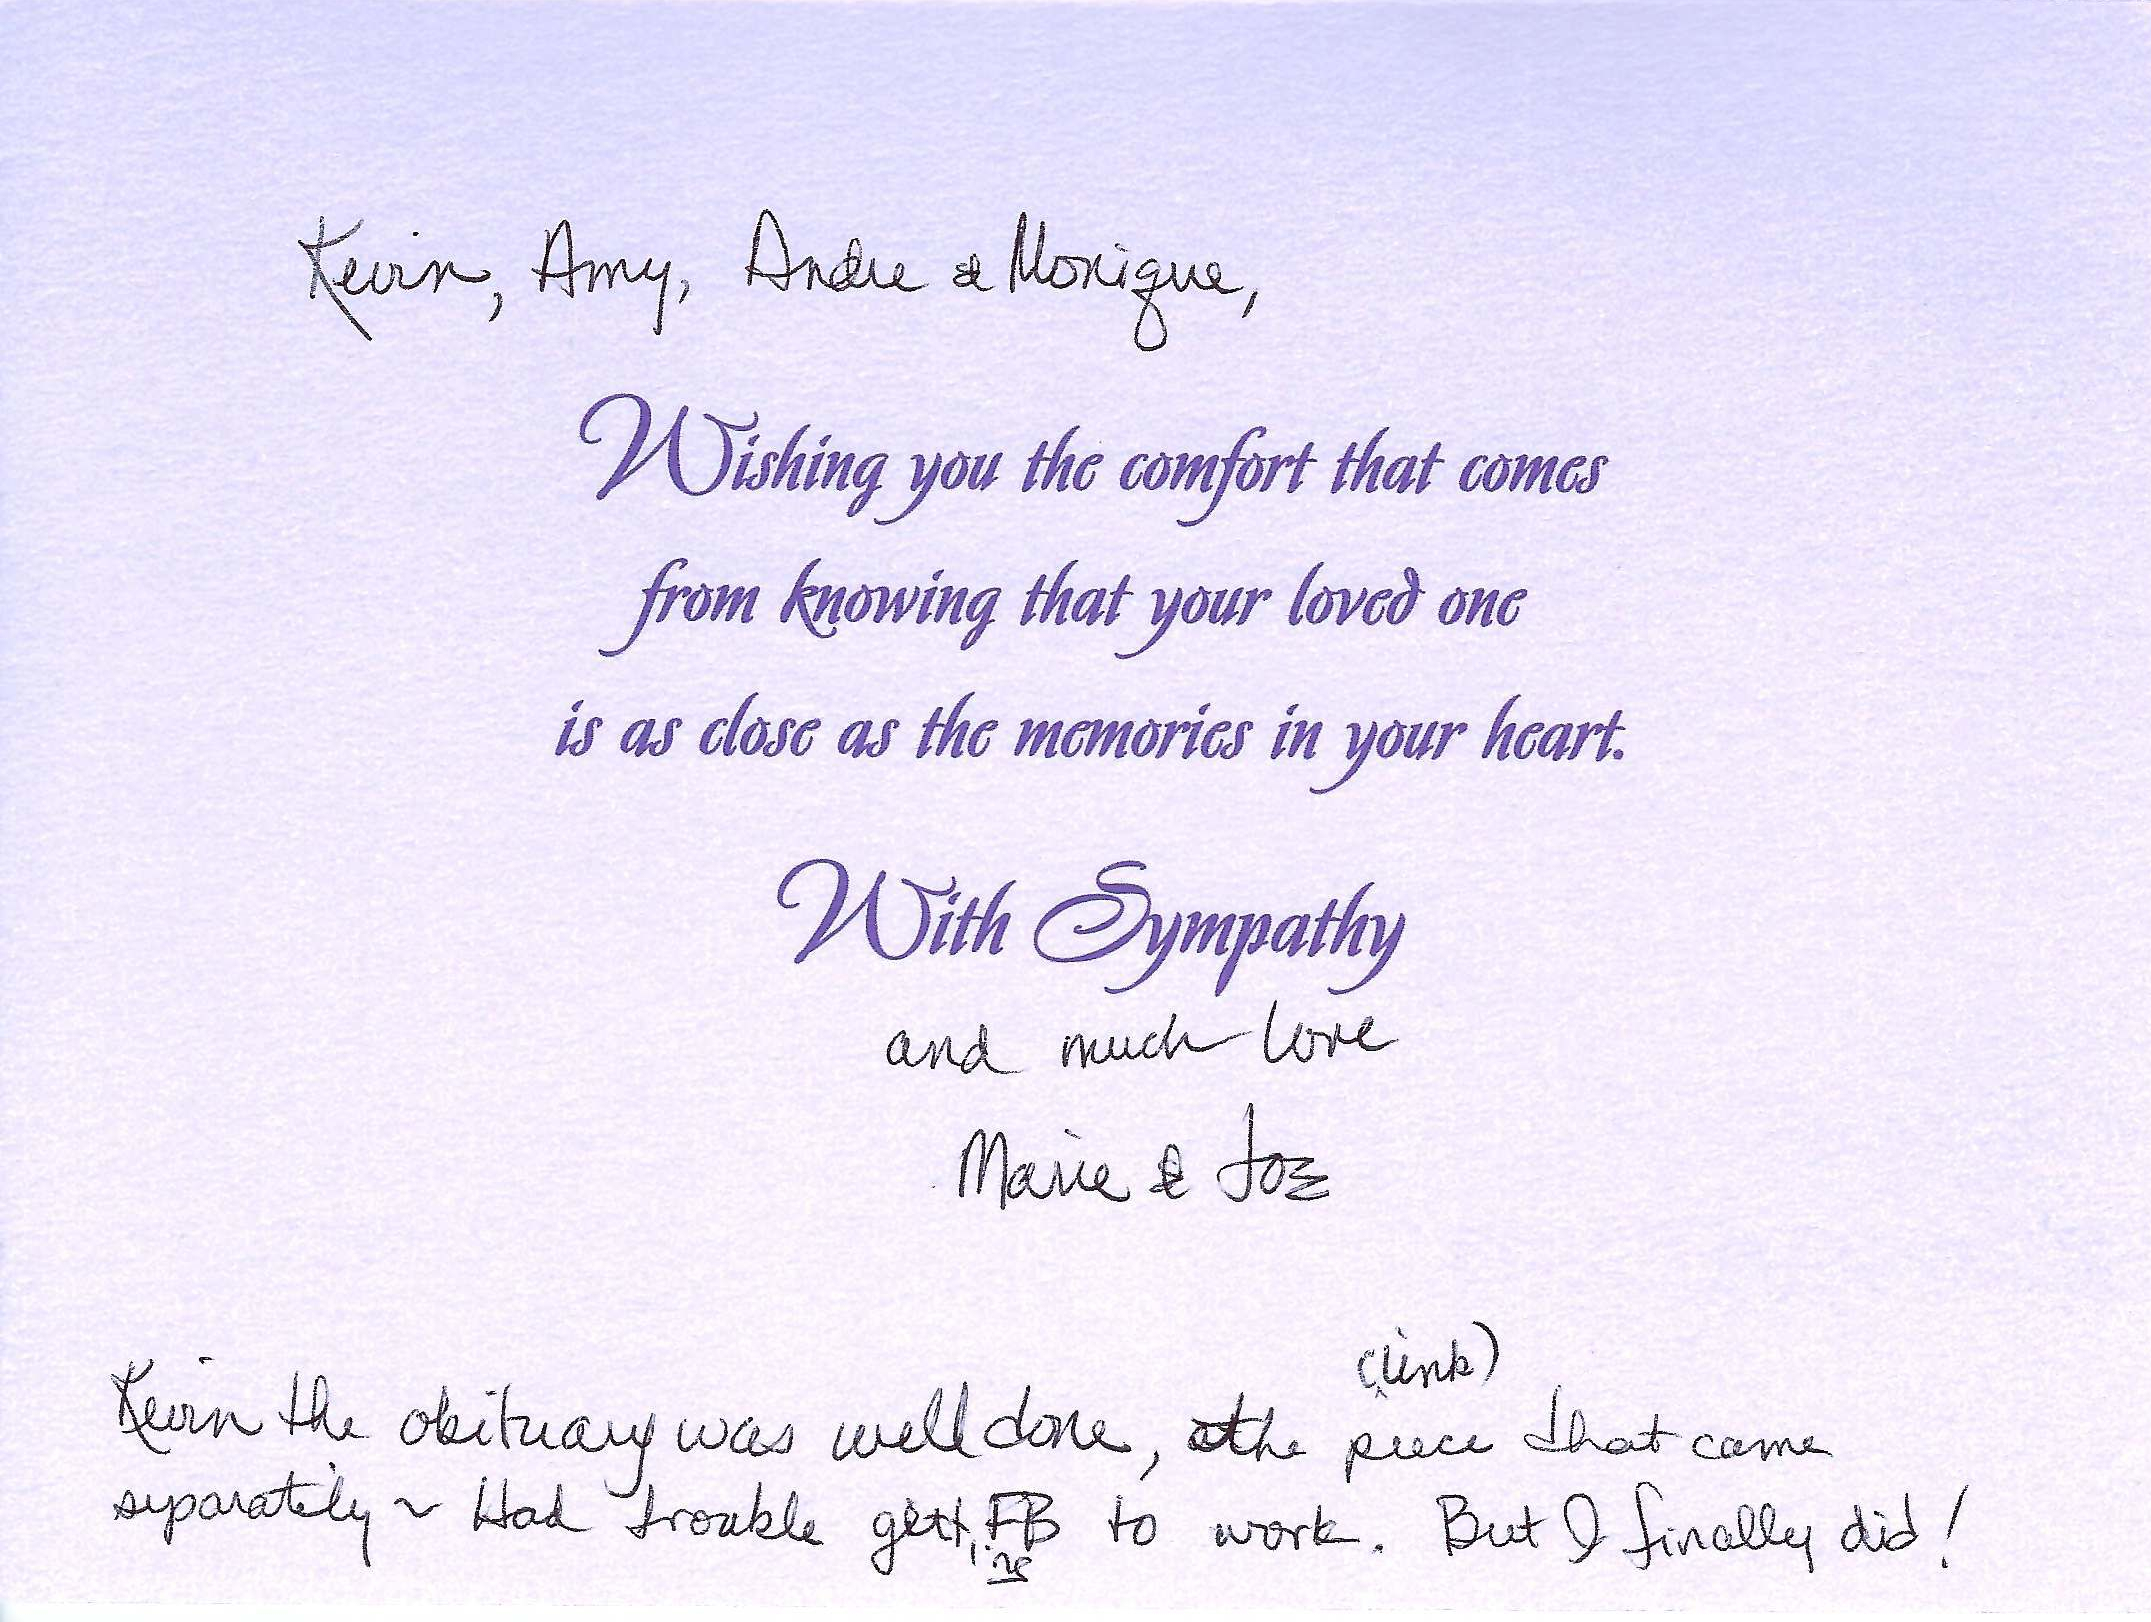 Kevin, Amy, Andre & Monique,
Wishing you the comfort that comes
from knowing that your loved one
is as close as the memories in your heart.
With Sympathy
and much love
Marie & Joe
(link)
Kevin the obituary was well done, the piece that came
separatily ~ Had trouble getting FB to work. But I finally did!